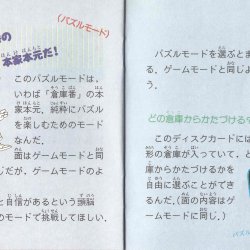 (パズルモード)
の
本家本元だ!
このパズルモードは、
いわば「倉庫番」の本
家本元、純粋にパズル
を楽しむためのモード
なんだ。
面はゲームモードと同
じだが、
と自信があるという頭脳
のモードで挑戦してほしい。
パズルモードを選ぶとま
る、ゲームモードと同じよ
う。
どの倉庫からかたづける
このディスクカードには
形の倉庫が入っていて、と
倉庫からかたづけるかを
自由に選ぶことができ
るんだ。(面の内容はゲ
ームモードに同じ。)
パズル